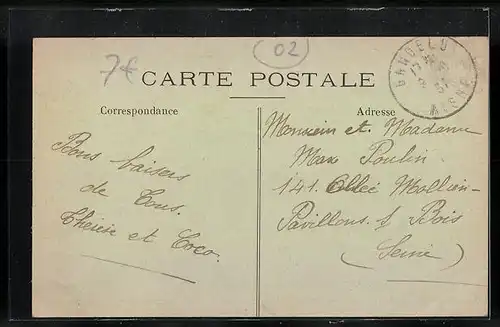 7€
02
CARTE POSTALE
Correspondance
Adresse
GANDELU
AISNE
Bons baisers
de Tous.
Thérèse et Coco.
Monsieur et Madame
Max Poulin
141. Allée Mollien
Pavillons. s/ Bois
(Seine)